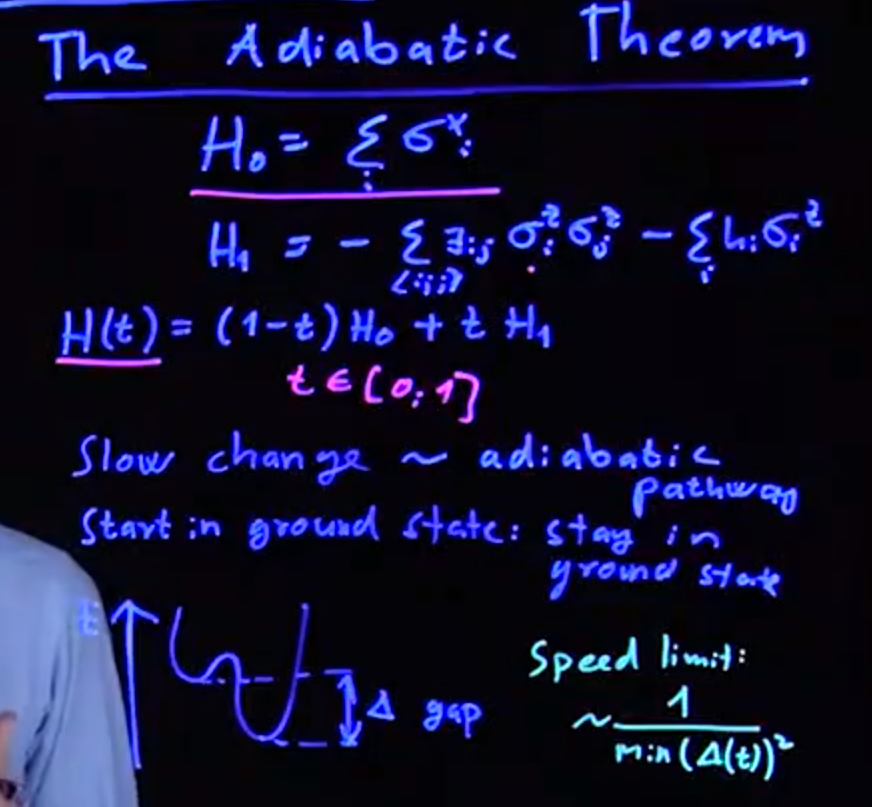 The Adiabatic Theorem
H₀ = Σᵢ σˣᵢ
H₁ = - Σ<i,j> Jᵢⱼ σᶻᵢ σᶻⱼ - Σᵢ hᵢ σᵢᶻ
H(t) = (1-t) H₀ + t H₁
t ∈ [0,1]
Slow change ~ adiabatic
pathway
Start in ground state: stay in
ground state
E
Δ gap
Speed limit:
~ 1 / min(Δ(t))²